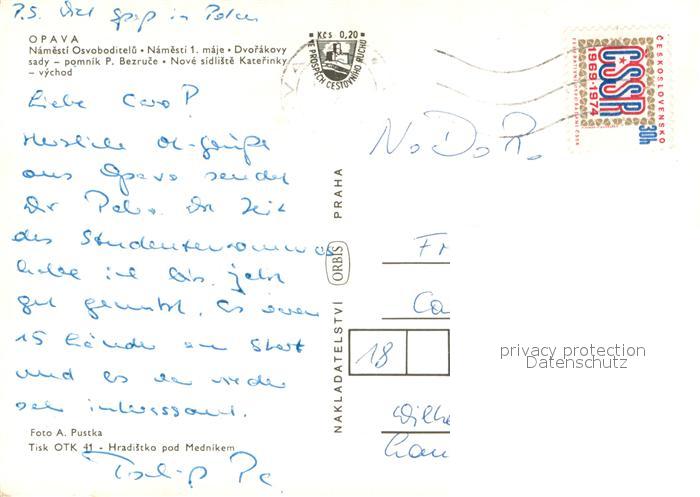 P.S. Viel Spaß in Polen
OPAVA
Náměstí Osvoboditelů • Náměstí 1. máje • Dvořákovy
sady – pomník P. Bezruče • Nové sídliště Kateřinky
– východ
Kčs 0,20
VE PROSPĚCH CESTOVNÍHO RUCHU
ČESKOSLOVENSKO
ČSSR
1969-1974
30h
Liebe
Herzliche
aus Opava sendet
Dir Die Zeit
des Studentensommers
habe ich bis jetzt
gut genutzt. Es waren
15 Länder am Start
und es war wieder
sehr interessant.
N. D. R.
Fr
Ca
18
Wilhe
NAKLADATELSTVÍ ORBIS PRAHA
privacy protection
Datenschutz
Foto A. Pustka
Tisk OTK 41 - Hradištko pod Medníkem